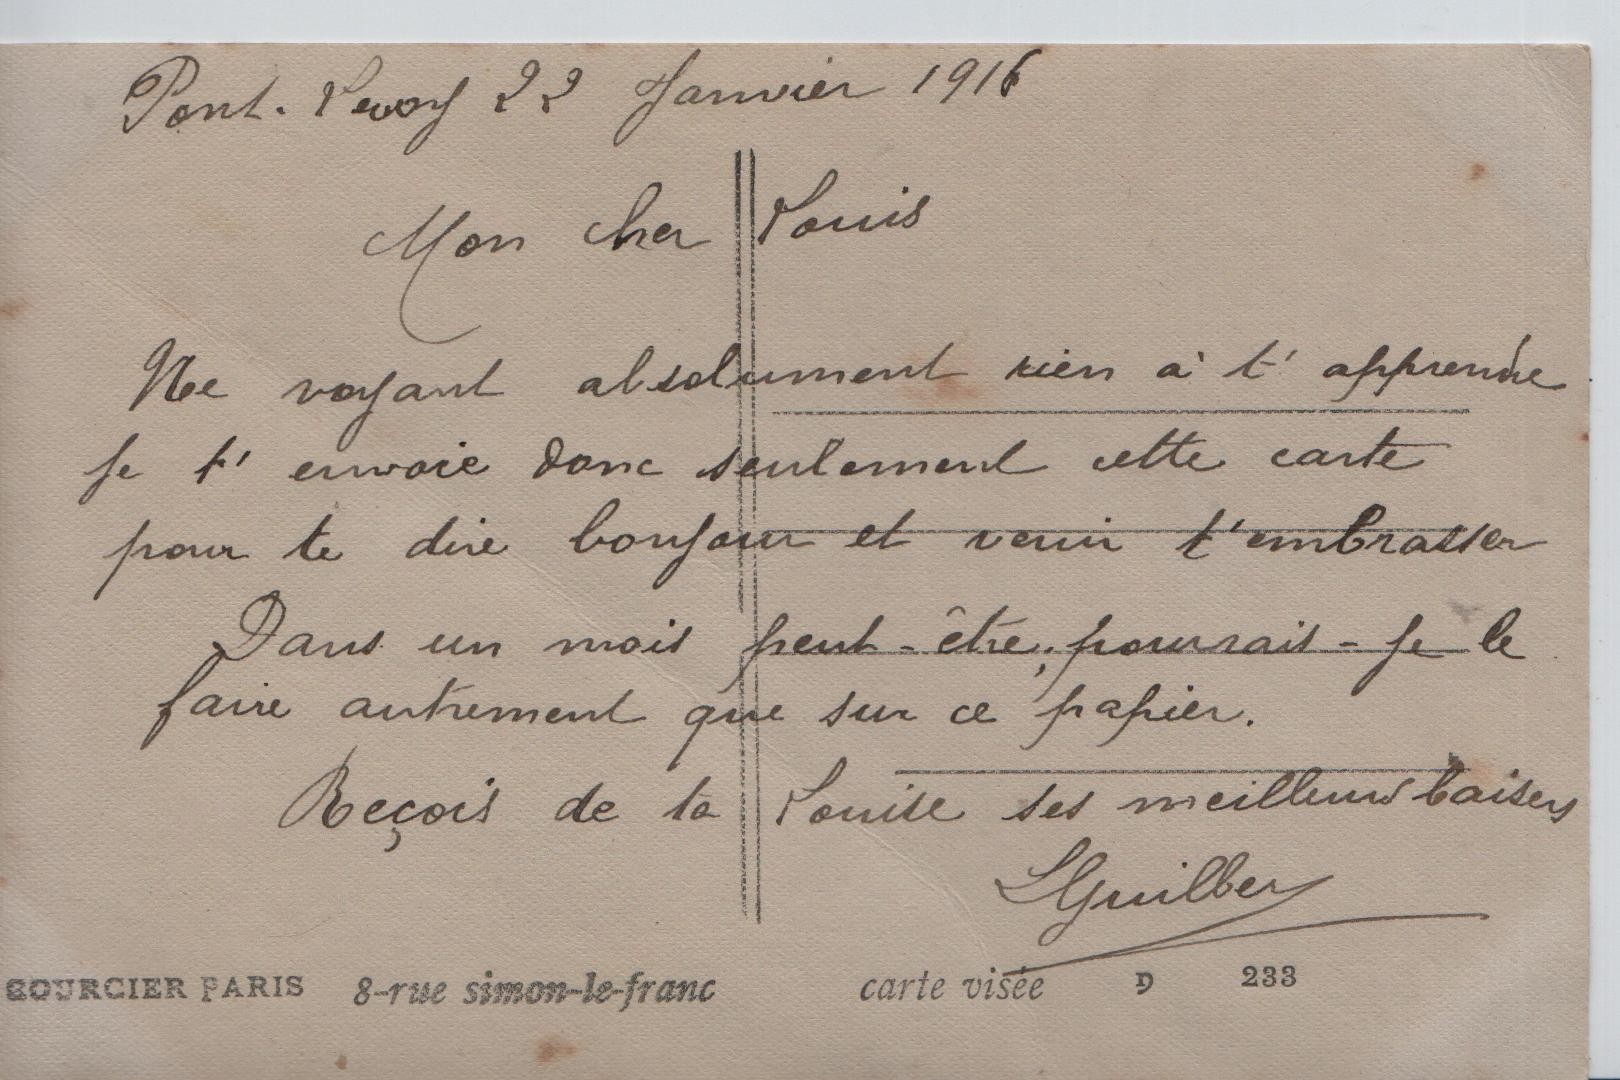 Pont. Levoy 22 Janvier 1916
Mon cher Louis
Ne voyant absolument rien à t'apprendre
je t'envoie donc seulement cette carte
pour te dire bonjour et venir t'embrasser
Dans un mois peut-être, pourrais-je le
faire autrement que sur ce papier.
Reçois de ta Louise ses meilleurs baisers
LGuilber
GOURCIER PARIS 8-rue simon-le-franc carte visée D 233